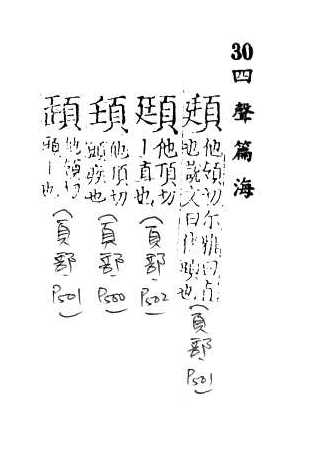 30 四聲篇海
他切尔雅曰
也說文曰作也
(頁部 P501)
頲
他頂切
丨直也
(頁部 P502)
他頂切
頭疾也
(頁部 P500)
他切
丨也
(頁部 P501)